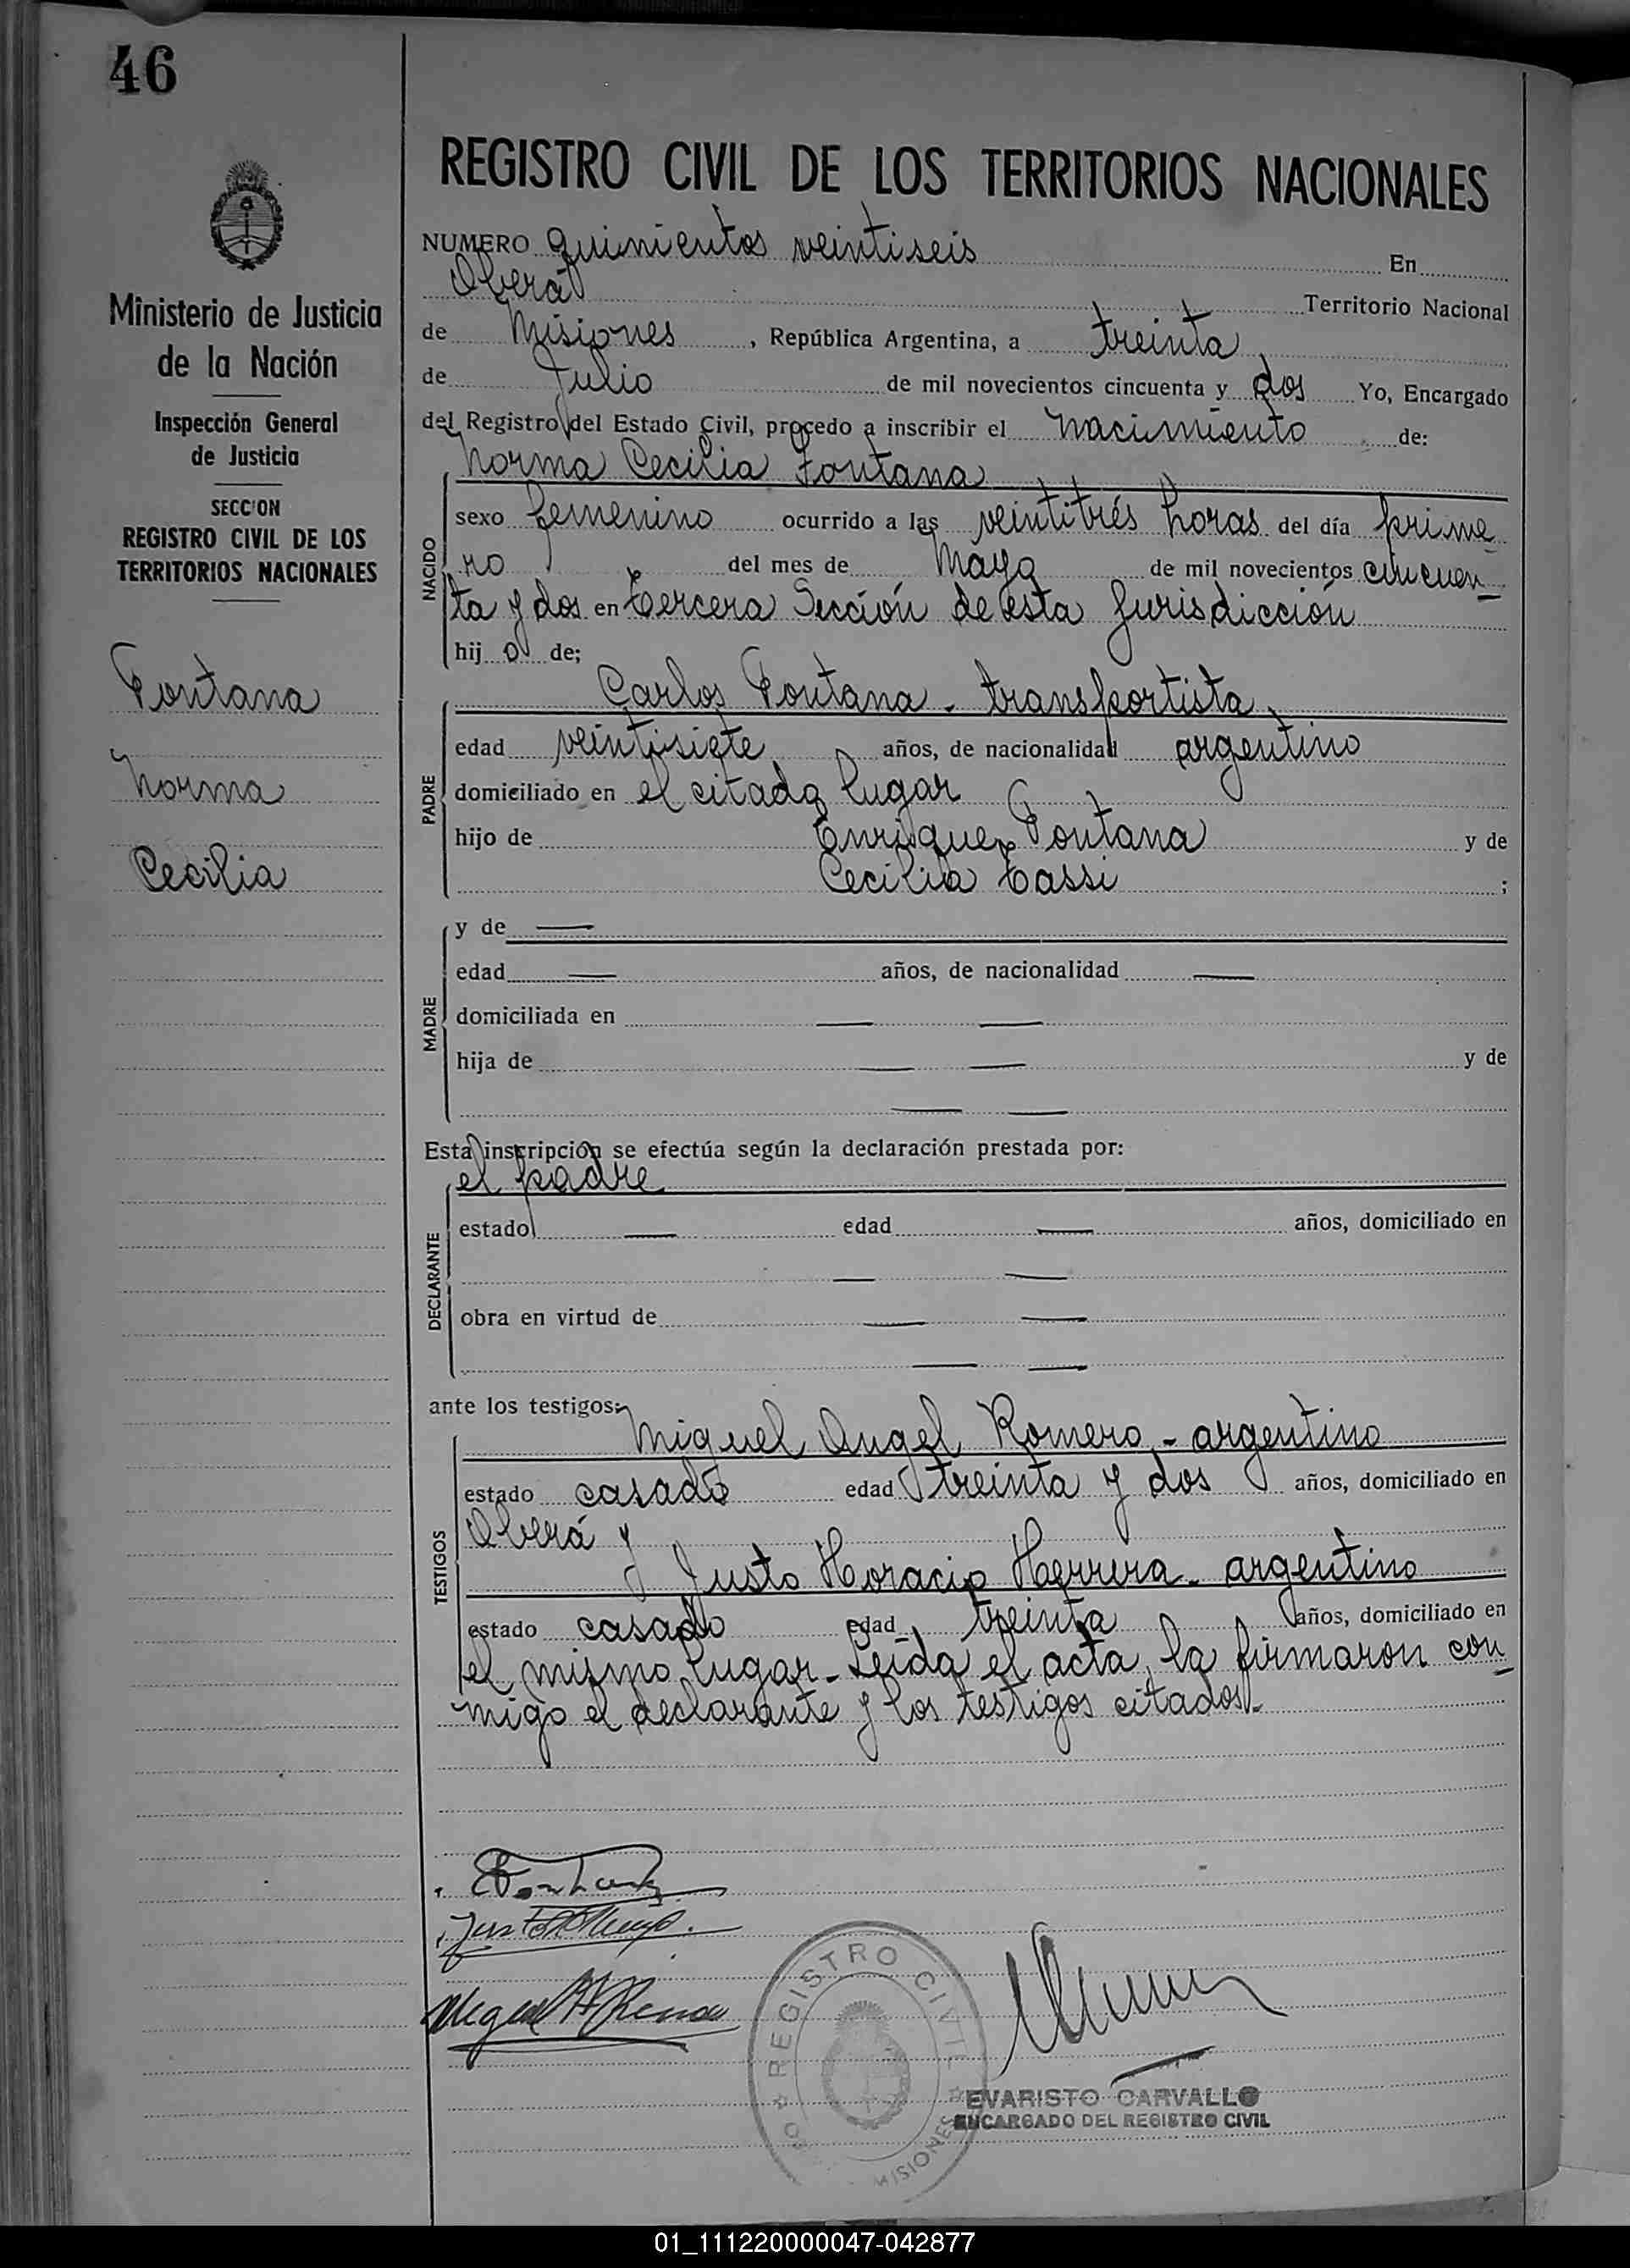 46
Ministerio de Justicia
de la Nación
Inspección General
de Justicia
SECCION
REGISTRO CIVIL DE LOS
TERRITORIOS NACIONALES
Fontana
Norma
Cecilia
REGISTRO CIVIL DE LOS TERRITORIOS NACIONALES
NUMERO quinientos veintiseis En
Oberá Territorio Nacional
de Misiones, República Argentina, a treinta
de Julio de mil novecientos cincuenta y dos Yo, Encargado
del Registro del Estado Civil, procedo a inscribir el nacimiento de:
Norma Cecilia Fontana
NACIDO
sexo femenino ocurrido a las veintitrés horas del día prime
ro del mes de Mayo de mil novecientos cincuen_
ta y dos en tercera Sección de esta Jurisdicción
hij a de;
Carlos Fontana - transportista,
PADRE
edad veintisiete años, de nacionalidad argentino
domiciliado en el citado lugar
hijo de Enrique Fontana y de
Cecilia Tassi ;
MADRE
y de —
edad — años, de nacionalidad —
domiciliada en — —
hija de — — y de
— —
Esta inscripción se efectúa según la declaración prestada por:
el padre
DECLARANTE
estado — edad — años, domiciliado en
— —
obra en virtud de — —
— —
ante los testigos:
Miguel Angel Romero - argentino
TESTIGOS
estado casado edad treinta y dos años, domiciliado en
Oberá y
Justo Horacio Herrera - argentino
estado casado edad treinta años, domiciliado en
el mismo lugar - Leída el acta, la firmaron con_
migo el declarante y los testigos citados.-
REGISTRO CIVIL
MISIONES
EVARISTO CARVALLO
ENCARGADO DEL REGISTRO CIVIL
01_111220000047-042877